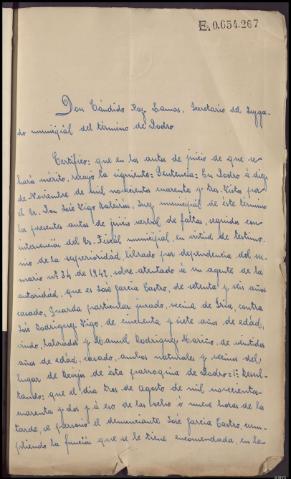 E.0.654.267
Don Cándido Rey Lamas, Secretario del Juzga-
do municipal del término de Dodro
Certifico: que en los autos de juicio de que se
hará mérito, recayó la siguiente: Sentencia: En Dodro a diez
de Noviembre de mil novecientos cuarenta y tres. Visto por
el Sr. Don José Vigo Baleirón, Juez municipal de este término
los presentes autos de juicio verbal de faltas, seguido con
intervención del Sr. Fiscal municipal, en virtud de testimo-
nio de la superioridad librado por dependencia del su-
mario nº 34 de 1942, sobre atentado a un agente de la
autoridad, que es José García Castro, de setenta y seis años
casado, Guarda particular jurado, vecino de Iria, contra
José Rodríguez Vigo, de cincuenta y siete años de edad,
viudo, labrador y Manuel Rodríguez de veintidós
años de edad, casado, ambos naturales y vecinos del
lugar de de esta parroquia de Dodro: Resul-
tando: que el día tres de agosto de mil novecientos
cuarenta y dos y a eso de las ocho o nueve horas de la
tarde, se personó el denunciante José García Castro cum-
pliendo la función que se le tiene encomendada, en la